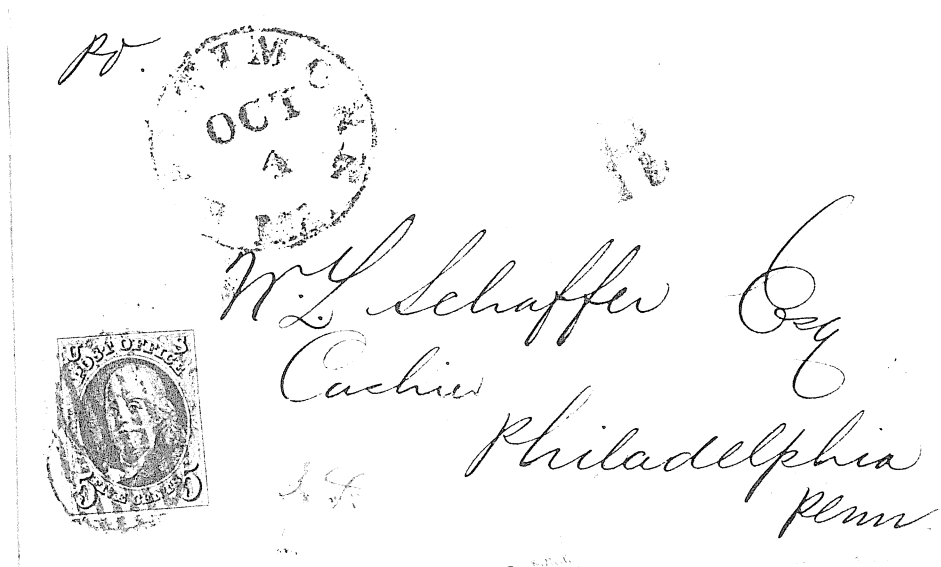 pd.
OCT
4
W. L. Schaffer Esq
Cashier
Philadelphia
Penn
U S
POST OFFICE
FIVE CENTS
5 5